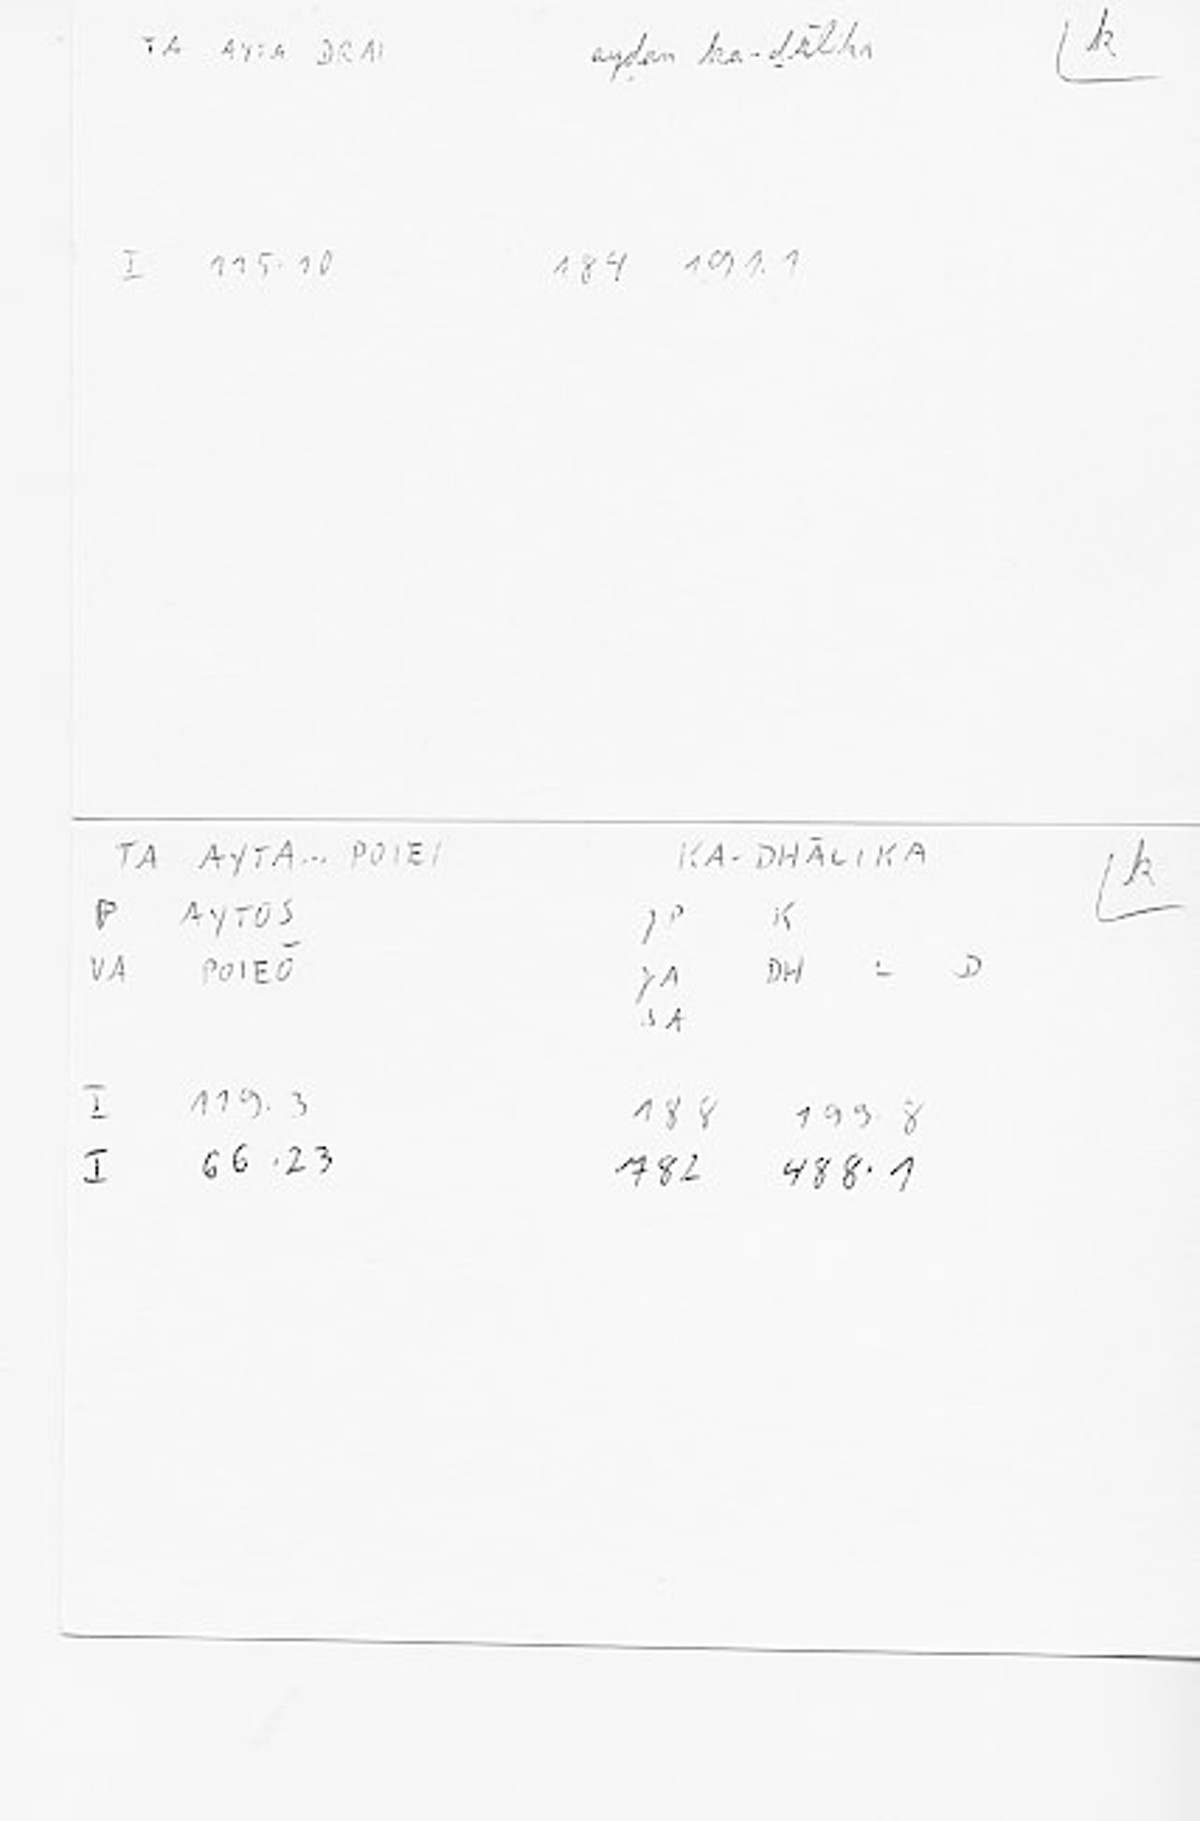 TA AYTA DRAI ayḍan ka-ḏālika k
I 115.10 184 191.1
TA AYTA... POIEI KA-DHĀLIKA k
P AYTOS γP K
VA POIEŌ γA DH = D
SA
I 119.3 188 199.8
I 66.23 782 488.1